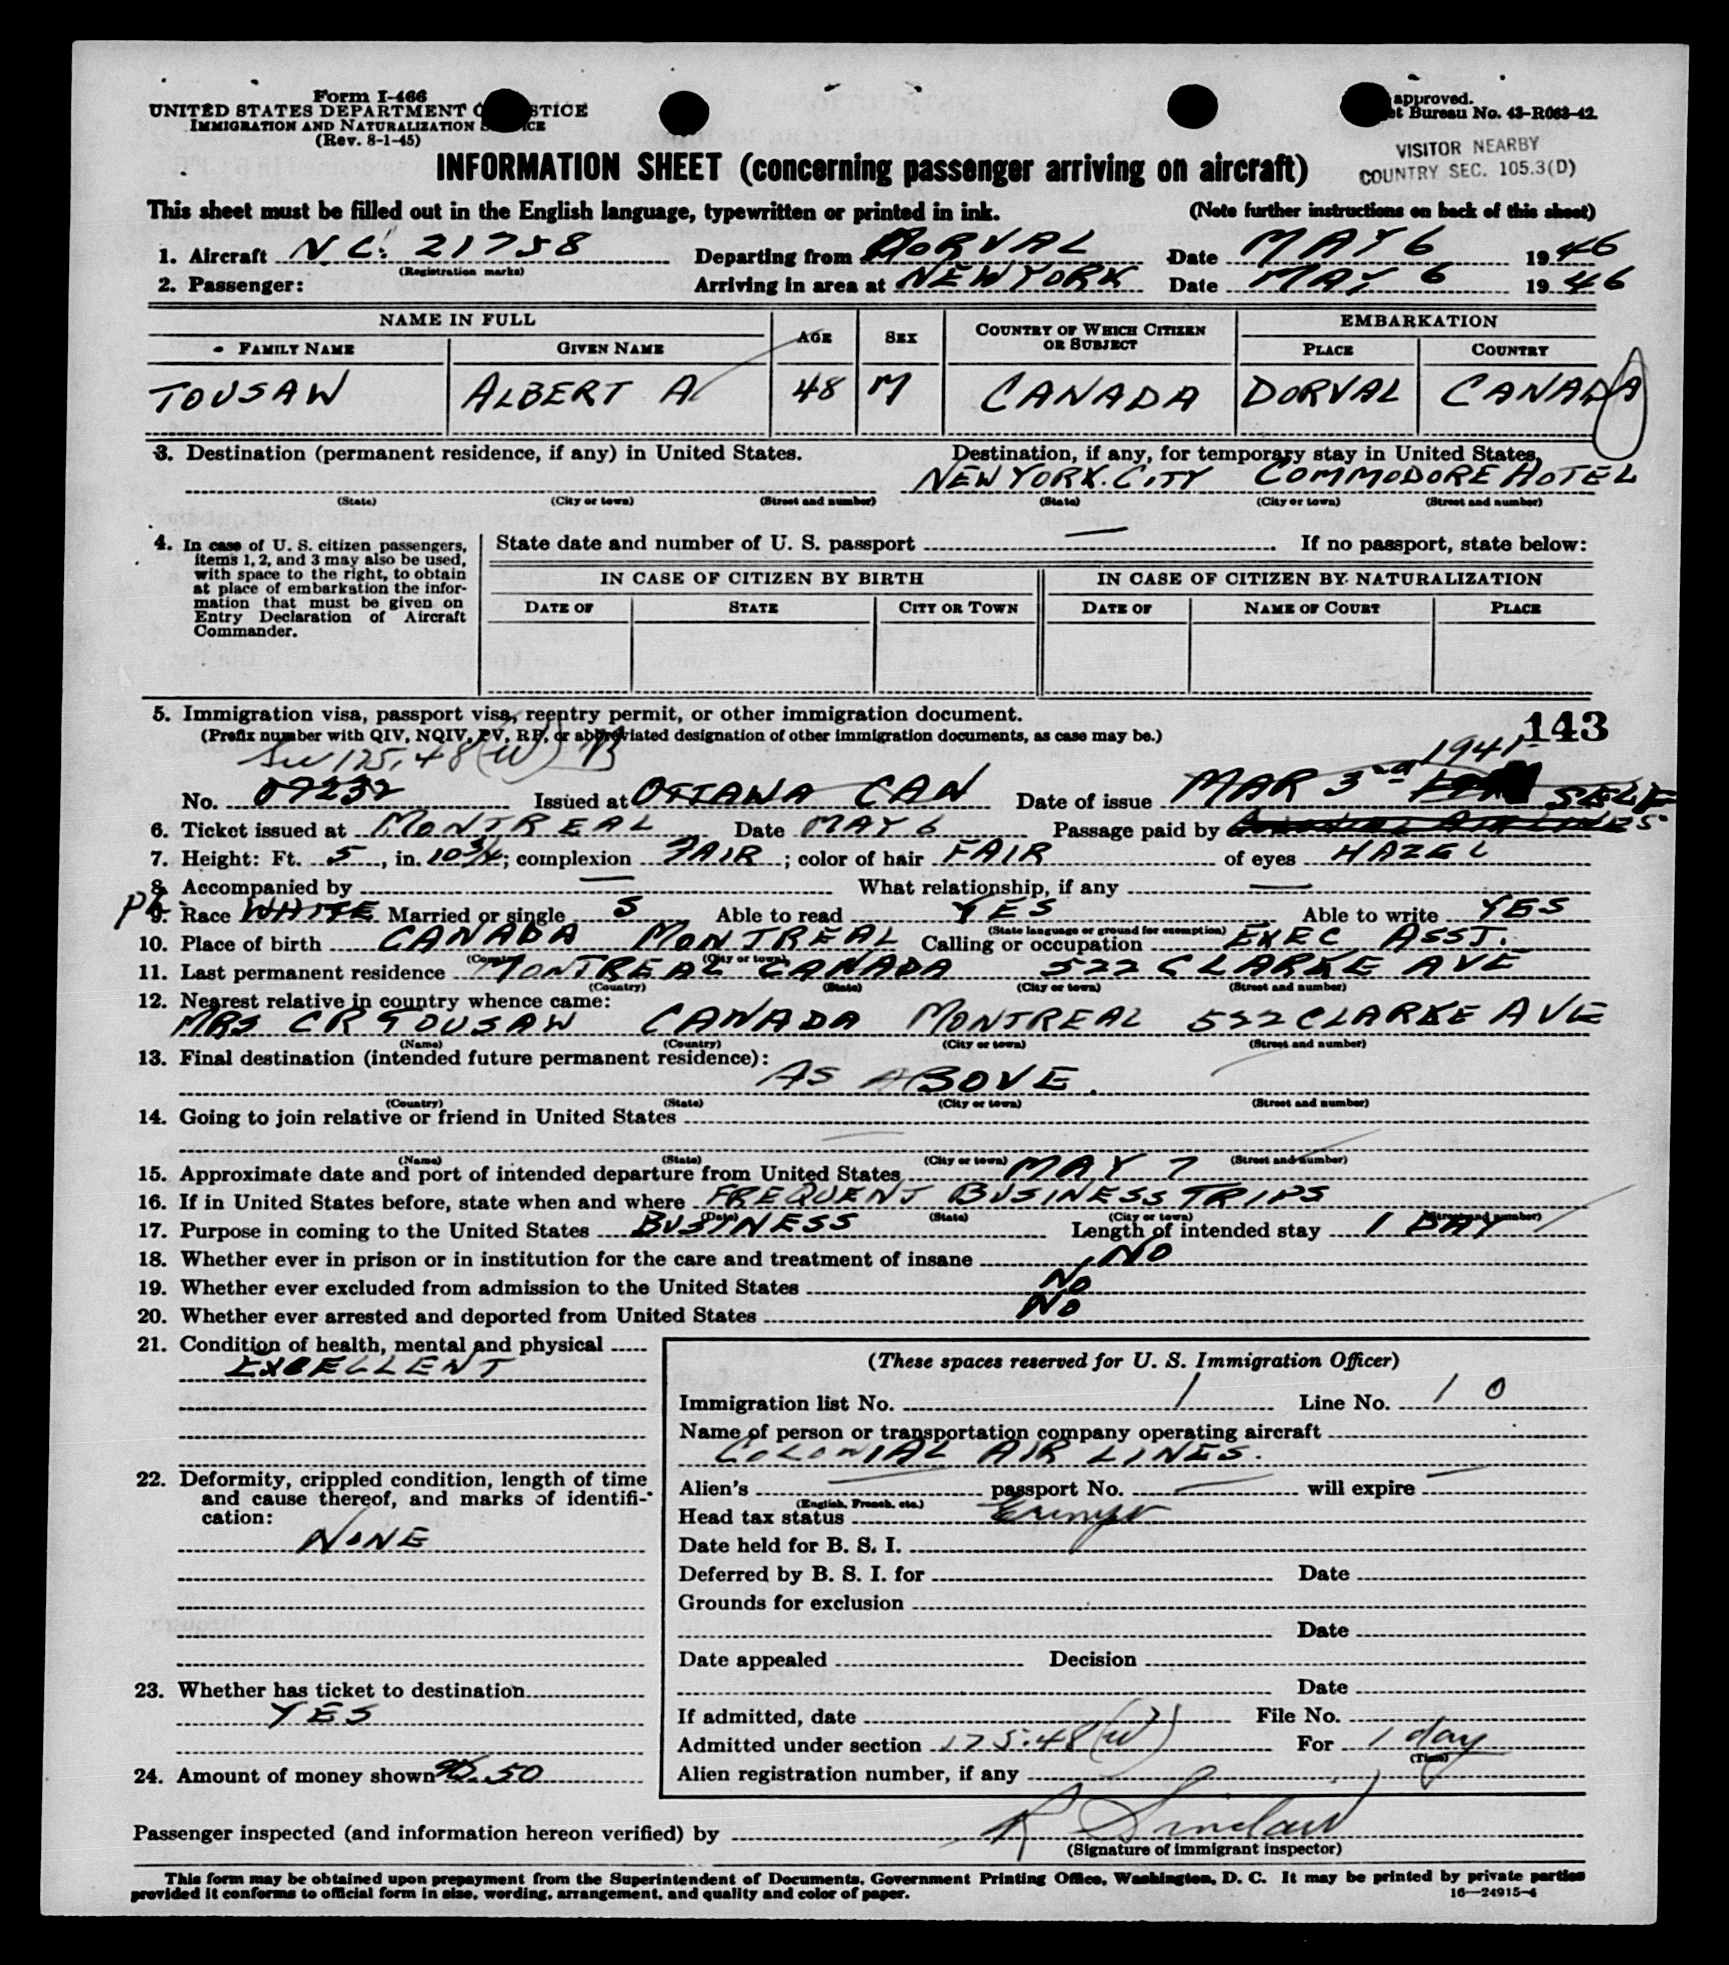 Form I-466
UNITED STATES DEPARTMENT OF JUSTICE
IMMIGRATION AND NATURALIZATION SERVICE
(Rev. 8-1-45)
approved.
Bureau No. 43-R063-42.
VISITOR NEARBY
COUNTRY SEC. 105.3(D)
INFORMATION SHEET (concerning passenger arriving on aircraft)
This sheet must be filled out in the English language, typewritten or printed in ink. (Note further instructions on back of this sheet)
1. Aircraft N.C. 21758 Departing from DORVAL Date MAY 6 1946
(Registration marks)
2. Passenger: Arriving in area at NEW YORK Date MAY 6 1946
NAME IN FULL AGE SEX COUNTRY OF WHICH CITIZEN OR SUBJECT EMBARKATION
FAMILY NAME GIVEN NAME PLACE COUNTRY
TOUSAW ALBERT A 48 M CANADA DORVAL CANADA
3. Destination (permanent residence, if any) in United States. Destination, if any, for temporary stay in United States.
NEW YORK. CITY COMMODORE HOTEL
(State) (City or town) (Street and number) (State) (City or town) (Street and number)
4. In case of U. S. citizen passengers, items 1, 2, and 3 may also be used, with space to the right, to obtain at place of embarkation the information that must be given on Entry Declaration of Aircraft Commander.
State date and number of U. S. passport — If no passport, state below:
IN CASE OF CITIZEN BY BIRTH IN CASE OF CITIZEN BY NATURALIZATION
DATE OF STATE CITY OR TOWN DATE OF NAME OF COURT PLACE
5. Immigration visa, passport visa, reentry permit, or other immigration document.
143
(Prefix number with QIV, NQIV, PV, RP, or abbreviated designation of other immigration documents, as case may be.)
175.48(W) B
1941
No. 09232 Issued at OTTAWA CAN Date of issue MAR 3rd
6. Ticket issued at MONTREAL Date MAY 6 Passage paid by SELF
7. Height: Ft. 5, in. 10 3/4; complexion FAIR; color of hair FAIR of eyes HAZEL
8. Accompanied by — What relationship, if any —
9. Race WHITE Married or single S Able to read YES Able to write YES
(State language or ground for exemption)
10. Place of birth CANADA MONTREAL Calling or occupation EXEC ASST.
(Country) (City or town)
11. Last permanent residence MONTREAL CANADA 522 CLARKE AVE
(Country) (State) (City or town) (Street and number)
12. Nearest relative in country whence came:
MRS CR TOUSAW CANADA MONTREAL 522 CLARKE AVE
(Name) (Country) (City or town) (Street and number)
13. Final destination (intended future permanent residence):
AS ABOVE.
(Country) (State) (City or town) (Street and number)
14. Going to join relative or friend in United States
—
(Name) (State) (City or town) (Street and number)
15. Approximate date and port of intended departure from United States MAY 7
16. If in United States before, state when and where FREQUENT BUSINESS TRIPS
(Date) (State) (City or town) (Street and number)
17. Purpose in coming to the United States BUSINESS Length of intended stay 1 DAY
18. Whether ever in prison or in institution for the care and treatment of insane NO
19. Whether ever excluded from admission to the United States NO
20. Whether ever arrested and deported from United States NO
21. Condition of health, mental and physical
EXCELLENT
22. Deformity, crippled condition, length of time and cause thereof, and marks of identification:
NONE
23. Whether has ticket to destination
YES
24. Amount of money shown .50
(These spaces reserved for U. S. Immigration Officer)
Immigration list No. 1 Line No. 10
Name of person or transportation company operating aircraft
COLONIAL AIR LINES.
Alien's — passport No. — will expire —
(English, French, etc.)
Head tax status Exempt
Date held for B. S. I.
Deferred by B. S. I. for Date
Grounds for exclusion
Date
Date appealed Decision
Date
If admitted, date File No.
Admitted under section 175.48(W) For 1 day
(Time)
Alien registration number, if any
Passenger inspected (and information hereon verified) by R Sinclair
(Signature of immigrant inspector)
This form may be obtained upon prepayment from the Superintendent of Documents, Government Printing Office, Washington, D. C. It may be printed by private parties
provided it conforms to official form in size, wording, arrangement, and quality and color of paper.
16—24915-4